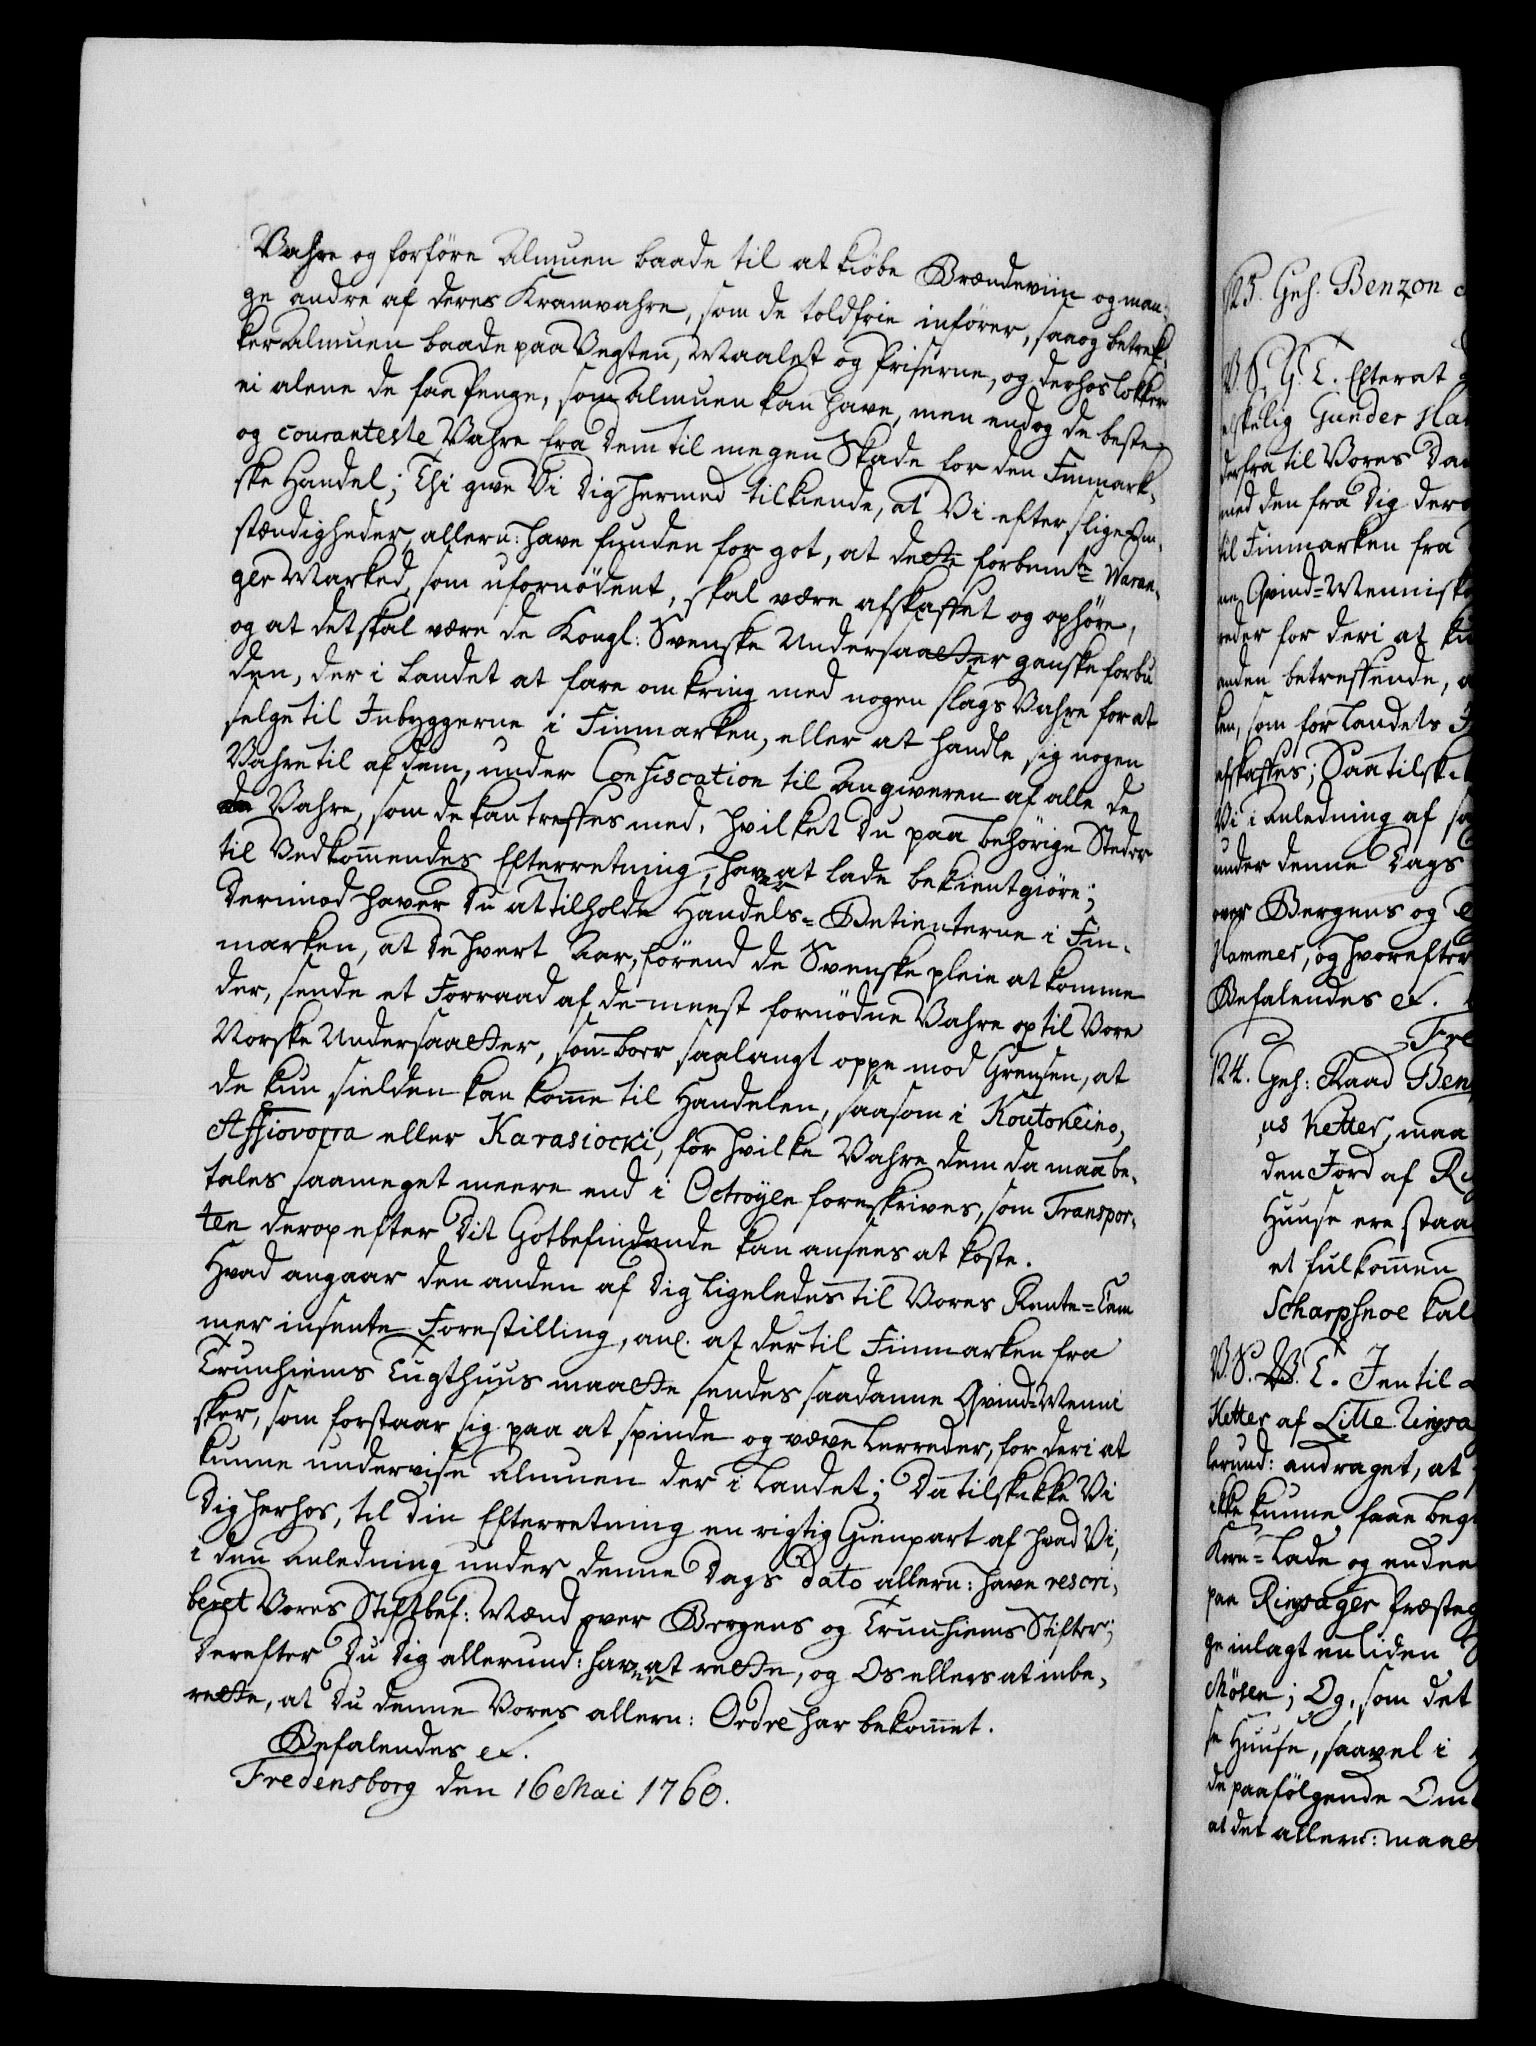 Vahre og forföre Almuen baade til at kiöbe Brændeviin og man-
ge andre af deres Kramvahre, som de toldfrie införer, saa og betrek-
ker Almuen baade paa Vegten, Maalet og Priserne, og derhos lokker
ei alene de faa Penge, som Almuen kan have, men endog de beste
og couranteste Vahre fra dem til megen Skade for den Finmark-
ske Handel; Thi give Vi Dig hermed tilkiende, at Vi efter slige Om-
stændigheder, allern: have funden for got, at dette forbemte Waran-
ger Marked, som ufornödent, skal være afskaffet og ophöre,
og at det skal være de Kongl: Svenske Undersaatter ganske forbu-
den, der i Landet at fare omkring med nogen slags Vahre for at
selge til Inbyggerne i Finmarken, eller at handle sig nogen
Vahre til af dem, under Confiscation til Angiveren af alle de
Vahre, som de kan treffes med, hvilket Du paa behörige Steder
til Vedkommendes Efterretning, haver at lade bekientgiöre;
Derimod haver Du at tilholde Handels-Betienterne i Fin-
marken, at De hvert Aar, förend de Svenske pleie at komme
der, sende et Forraad af de meest fornödne Vahre op til Vore
Norske Undersaatter, som boer saa langt oppe mod Grensen, at
de kun sielden kan komme til Handelen, saasom i Koutokeino,
Affiovorra eller Karasiocki, for hvilke Vahre dem da maa be-
tales saameget meere end i Octroyen foreskrives, som Transpor-
ten derop efter Dit Gotbefindende kan ansees at koste.
Hvad angaar den anden af Dig ligeledes til Vores Rente-Cam
mer insente Forestilling, anl. at der til Finmarken fra
Trunhiems Tugthuus maatte sendes saadanne Qvind-Menni
sker, som forstaar sig paa at spinde og væve Lerreder, for deri at
kunne undervise Almuen der i Landet; Da tilskikke Vi
Dig herhos, til Din Efterretning en rigtig Gienpart af hvad Vi,
i den Anledning under denne Dags Dato allern: have rescri-
beret Vores Stiftbef: Mænd over Bergens og Trunhiems Stifter;
Derefter Du Dig allerund: haver at rette, og Os ellers at inbe-
rette, at Du denne Vores allern: Ordre har bekommet.
Befalendes etc.
Fredensborg den 16 Mai 1760.
Geh. Benzon
V. S. G. T. Efterat
Gunder Ha
derfra til Vores Da
med den fra Dig der
til Finmarken fra
ne Qvind-Mennisk
reder for deri at ku
anden betreffende,
ken, som for Landets
afskaffes; Saa tilsk
Vi i Anledning af
under denne Dags
over Bergens og
Hammer, og hvorefter
Befalendes etc.
Fre
124. Geh: Raad Ben
us Ketter, maa
den Jord af Ri
Huuse ere staa
et fulkommen
Scharpsnoe kal
V. S. T. Jentil
Ketter af Lille Ringsa
lerund: andraget, at
ikke kunne faae beg
Korn-Lade og en deel
paa Ringsager Præsteg
ge inlagt en liden
Mösen; Og, som det
se Huuse, saavel i
de paafölgende Om
at det allern: maat